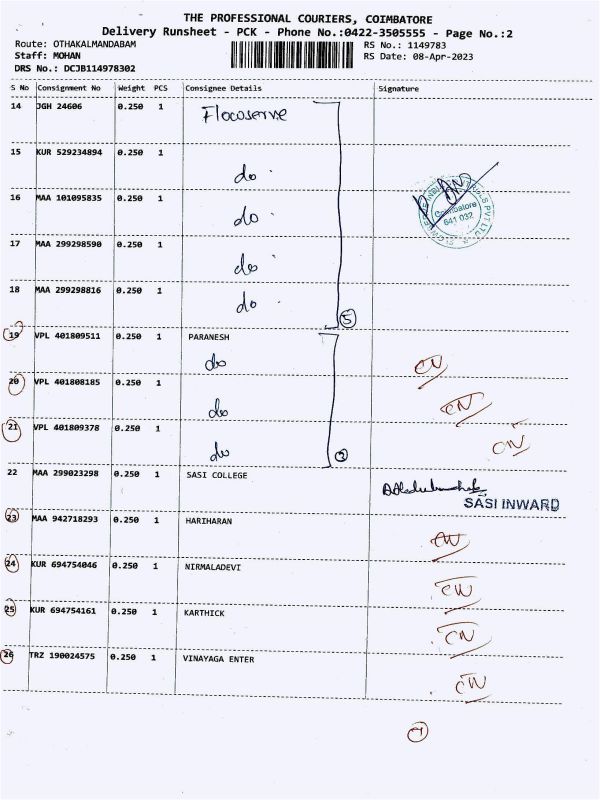 THE PROFESSIONAL COURIERS, COIMBATORE
Delivery Runsheet - PCK - Phone No.:0422-3505555 - Page No.:2
Route: OTHAKALMANDABAM
RS No.: 1149783
Staff: MOHAN
RS Date: 08-Apr-2023
DRS No.: DCJB114978302
S No Consignment No Weight PCS Consignee Details Signature
14 JGH 24606 0.250 1 Flocoserve
15 KUR 529234894 0.250 1
do
16 MAA 101095835 0.250 1
do
Coimbatore
641 032
17 MAA 299298590 0.250 1
do
18 MAA 299298816 0.250 1
do
5
19 VPL 401809511 0.250 1 PARANESH
do CN
20 VPL 401808185 0.250 1
do CN
21 VPL 401809378 0.250 1
do CN
3
22 MAA 299023298 0.250 1 SASI COLLEGE
SASI INWARD
23 MAA 942718293 0.250 1 HARIHARAN
CN
24 KUR 694754046 0.250 1 NIRMALADEVI
CN
25 KUR 694754161 0.250 1 KARTHICK
CN
26 TRZ 190024575 0.250 1 VINAYAGA ENTER
CN